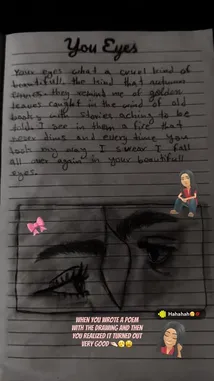 You Eyes
Your eyes what a cruel kind of
beautifull, the kind that autumn
envies they remind me of golden
leaves caught in the wind of old
books with stories aching to be
told. I see in them a fire that
never dims and every time you
look my way I swear I fall
all over again in your beautifull
eyes.
Hahahah
WHEN YOU WROTE A POEM
WITH THE DRAWING AND THEN
YOU REALIZED IT TURNED OUT
VERY GOOD